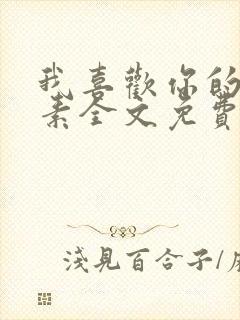 我喜歡你的
素全文免費
淺見百合子/